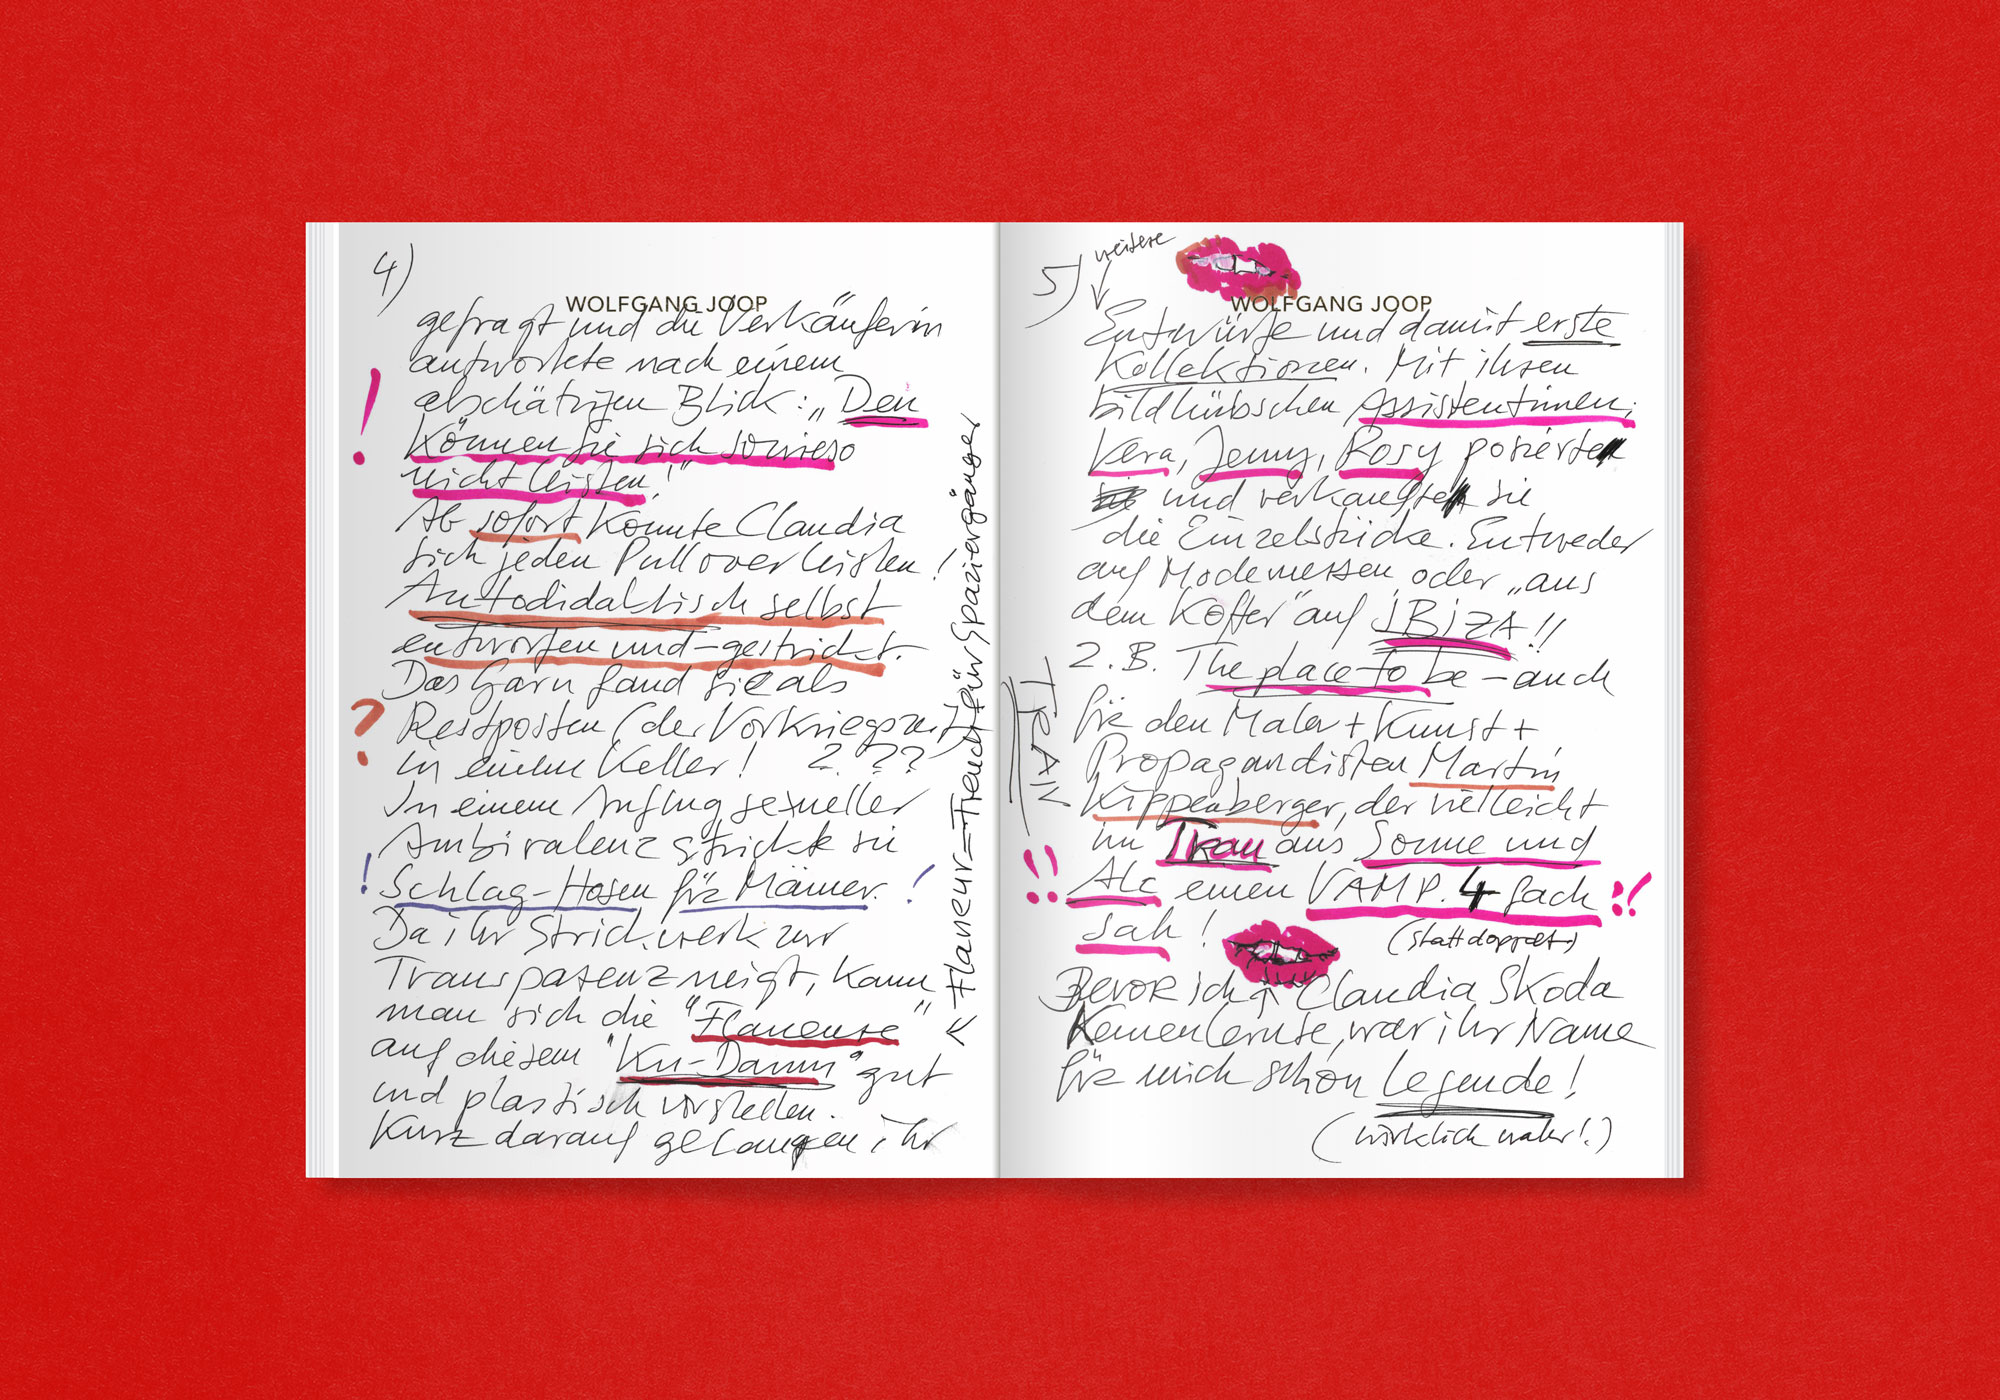 4)
WOLFGANG JOOP
gefragt und die Verkäuferin
antwortete nach einem
abschätzigen Blick: „Den
können Sie sich sowieso
nicht leisten!"
Ab sofort konnte Claudia
sich jeden Pullover leisten!
Autodidaktisch selbst
entworfen und -gestrickt.
Das Garn fand sie als
Restposten (der Vorkriegszeit)
in einem Keller! ? ??
In einem Anflug sexueller
Ambivalenz strickte sie
! Schlag-Hosen für Männer. !
Da ihr Strickwerk zur
Transparenz neigt, kann
man sich die "Flaneuse"
auf diesem "Ku-Damm" gut
und plastisch vorstellen.
Kurz darauf gelangen ihr
Flaneur = French für Spaziergänger
5)
weitere
WOLFGANG JOOP
Entwürfe und damit erste
Kollektionen. Mit ihren
bildhübschen Assistentinnen;
Vera, Jenny, Rosy posierte
und verkaufte sie
die Einzelstücke. Entweder
auf Modemessen oder „aus
dem Koffer" auf IBIZA!!
z.B. The place to be – auch
für den Maler + Kunst +
Propagandisten Martin
Kippenberger, der vielleicht
im Tran aus Sonne und
!! Alc einen VAMP. 4 fach !!
sah!
(statt doppelt)
Bevor ich Claudia Skoda
kennenlernte, war ihr Name
für mich schon Legende!
(wirklich wahr!)
TRAN